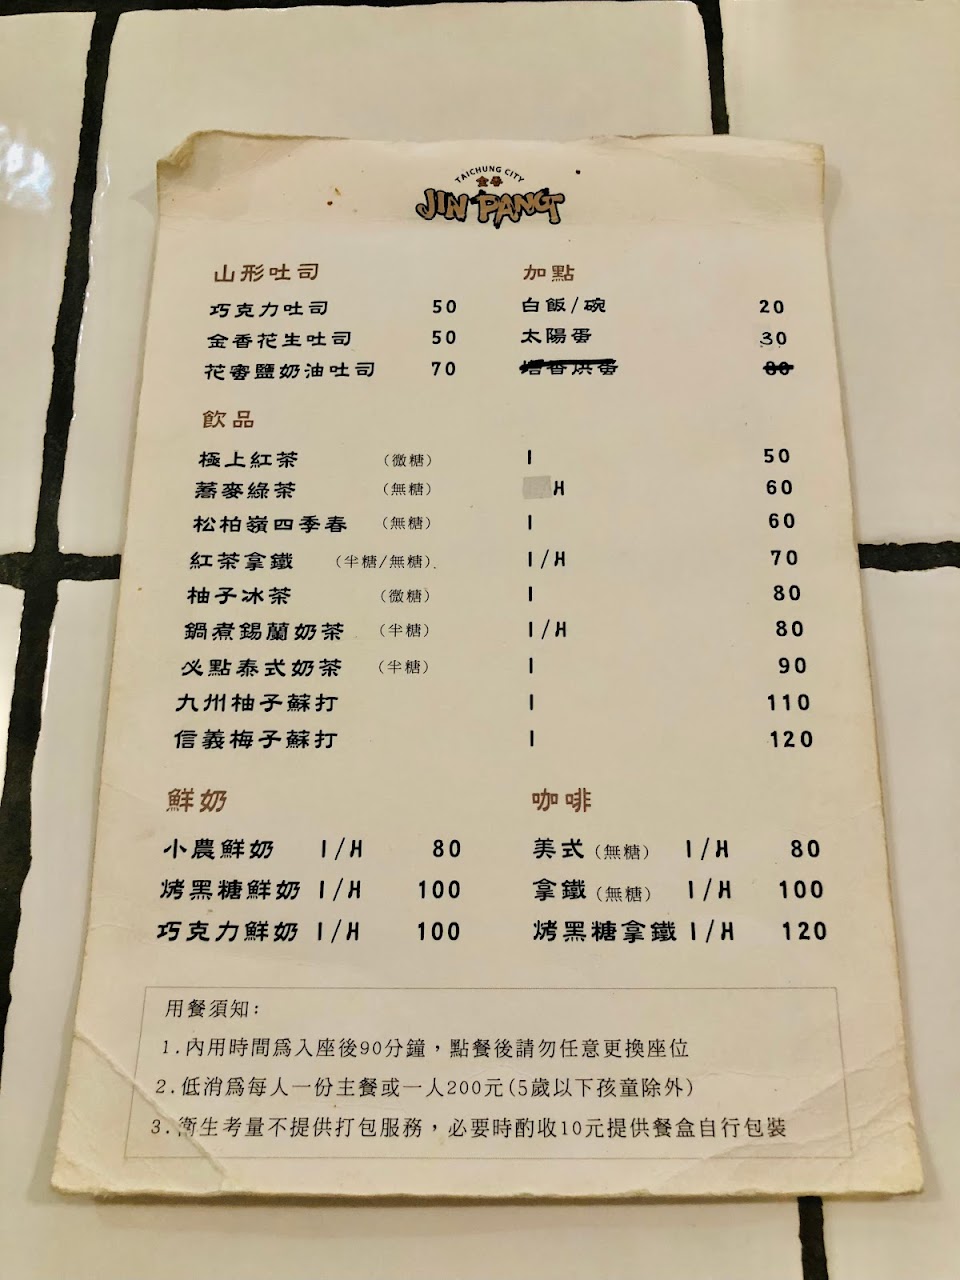 TAICHUNG CITY
金香
JIN PANG
山形吐司
巧克力吐司 50
金香花生吐司 50
花蜜鹽奶油吐司 70
加點
白飯/碗 20
太陽蛋 30
香烘蛋 80
飲品
極上紅茶 (微糖) I 50
蕎麥綠茶 (無糖) H 60
松柏嶺四季春 (無糖) I 60
紅茶拿鐵 (半糖/無糖) I/H 70
柚子冰茶 (微糖) I 80
鍋煮錫蘭奶茶 (半糖) I/H 80
必點泰式奶茶 (半糖) I 90
九州柚子蘇打 I 110
信義梅子蘇打 I 120
鮮奶
小農鮮奶 I/H 80
烤黑糖鮮奶 I/H 100
巧克力鮮奶 I/H 100
咖啡
美式 (無糖) I/H 80
拿鐵 (無糖) I/H 100
烤黑糖拿鐵 I/H 120
用餐須知:
1.內用時間為入座後90分鐘，點餐後請勿任意更換座位
2.低消為每人一份主餐或一人200元(5歲以下孩童除外)
3.衛生考量不提供打包服務，必要時酌收10元提供餐盒自行包裝